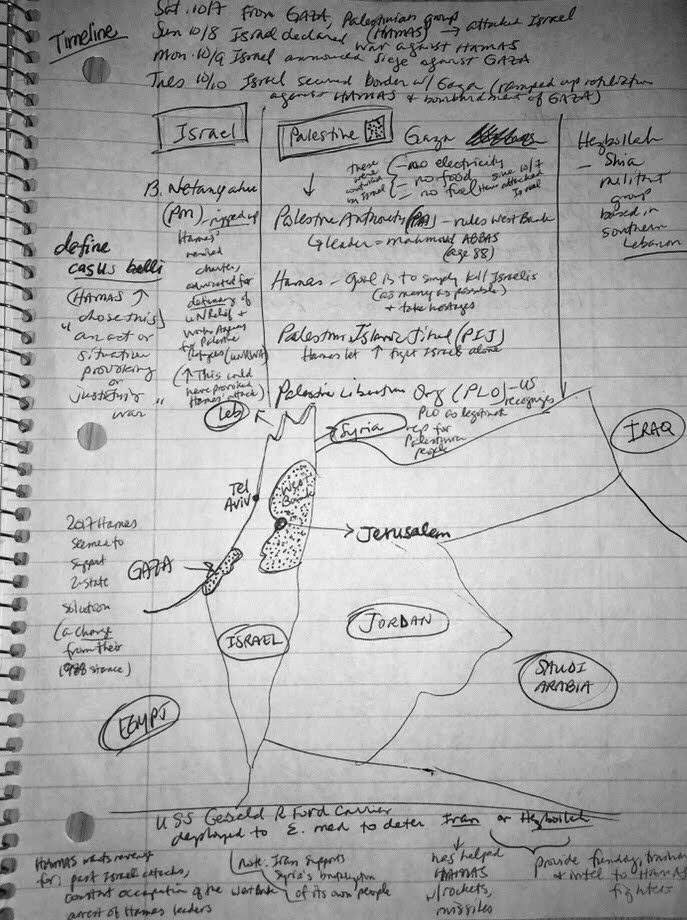 Timeline
Sat. 10/7 From GAZA, Palestinian group
(HAMAS) → attacked Israel
Sun 10/8 Israel declared
war against HAMAS
Mon. 10/9 Israel announced siege against GAZA
Tues 10/10 Israel secured border w/ Gaza (ramped up retaliation
against HAMAS + bombardment of GAZA)
Israel
B. Netanyahu
(PM) - ripped up
Hamas'
revised
charter,
advocated for
of
UN Relief +
Works Agency
for Palestine
Refugees (UNRWA)
(↑ This could
have provoked
Hamas' attack).
define
casus belli
(HAMAS ↑
chose this)
"an act or
situation
provoking
or
justifying
war"
Palestine
Gaza
these
were
controlled
by Israel
- no electricity
- no food
- no fuel
since 10/7
Hamas attacked
Israel
↓
Palestine Authority (PA) - rules West Bank
↳ leader = Mahmoud ABBAS
(age 88)
Hamas - goal is to simply kill Israelis
(as many as possible)
+ take hostages
Palestine Islamic Jihad (PIJ)
Hamas let ↑ fight Israel alone
Palestine Liberation Org (PLO) - US
recognizes
PLO as legitimate
rep for
Palestinian
people
Hezbollah
- Shia
militant
group
based in
southern
Lebanon
Leb
Syria
IRAQ
Tel
Aviv
West
Bank
Jerusalem
GAZA
2017 Hamas
seemed to
support
2-state
solution
(a change
from their
1988 stance)
ISRAEL
JORDAN
SAUDI
ARABIA
EGYPT
USS Gerald R Ford Carrier
deployed to E. Med to deter Iran or Hezbollah
HAMAS wants revenge
for: past Israel attacks,
constant occupation of the West Bank
arrest of Hamas leaders
(note: Iran supports
Syria's
of its own people
↓
has helped
HAMAS
w/ rockets,
missiles
provide funding, training
+ intel to HAMAS
fighters